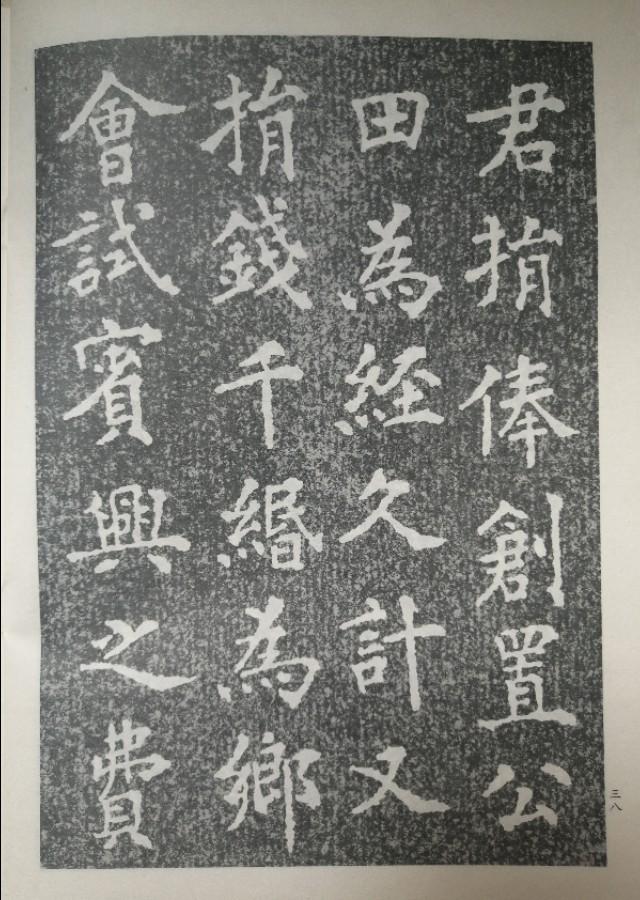 君捐俸創置公
田為經久計又
捐錢千緡為鄉
會試賓興之費
三八